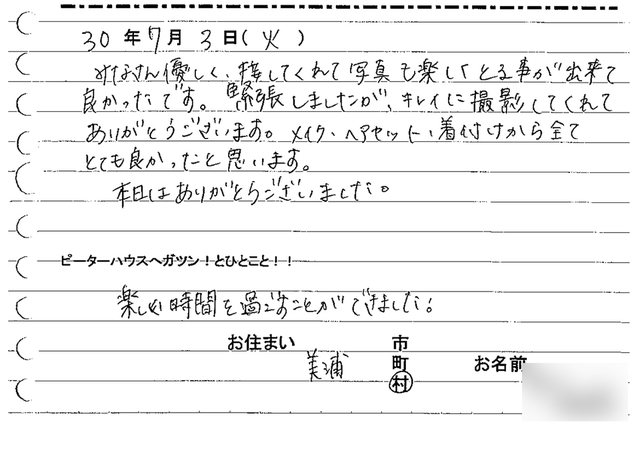 30年7月3日(火)
みなさん優しく、接してくれて写真も楽しくとる事が出来て
良かったです。緊張しましたが、キレイに撮影してくれて
ありがとうございます。メイク・ヘアセット・着付けから全て
とても良かったと思います。
本日はありがとうございました。
ピーターハウスへガツン!とひとこと!!
楽しい時間を過ごすことができました!
お住まい 市
美浦 町 お名前
村